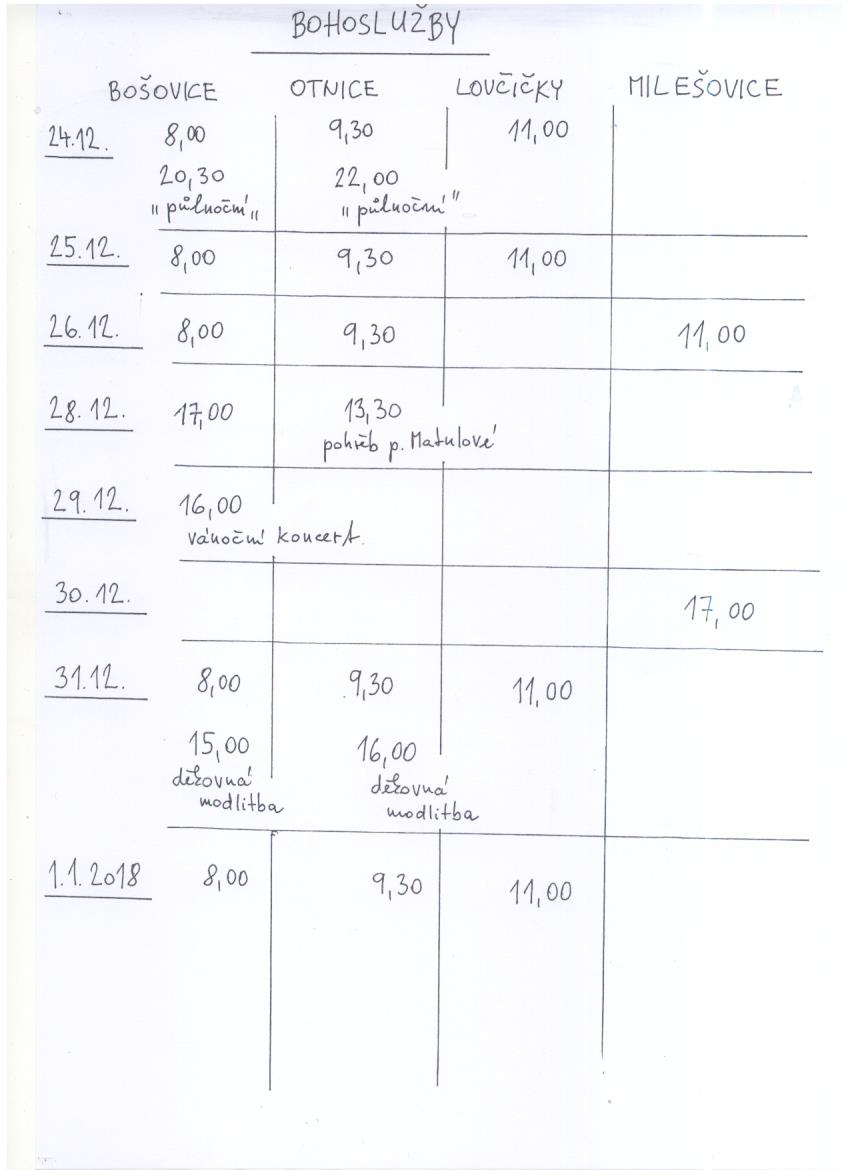 BOHOSLUŽBY
BOŠOVICE OTNICE LOVČIČKY MILEŠOVICE
24.12. 8,00 9,30 11,00
20,30 22,00
"půlnoční" "půlnoční"
25.12. 8,00 9,30 11,00
26.12. 8,00 9,30 11,00
28.12. 17,00 13,30
pohřeb p. Matulové
29.12. 16,00
vánoční koncert
30.12. 17,00
31.12. 8,00 9,30 11,00
15,00 16,00
děkovná děkovná
modlitba modlitba
1.1.2018 8,00 9,30 11,00